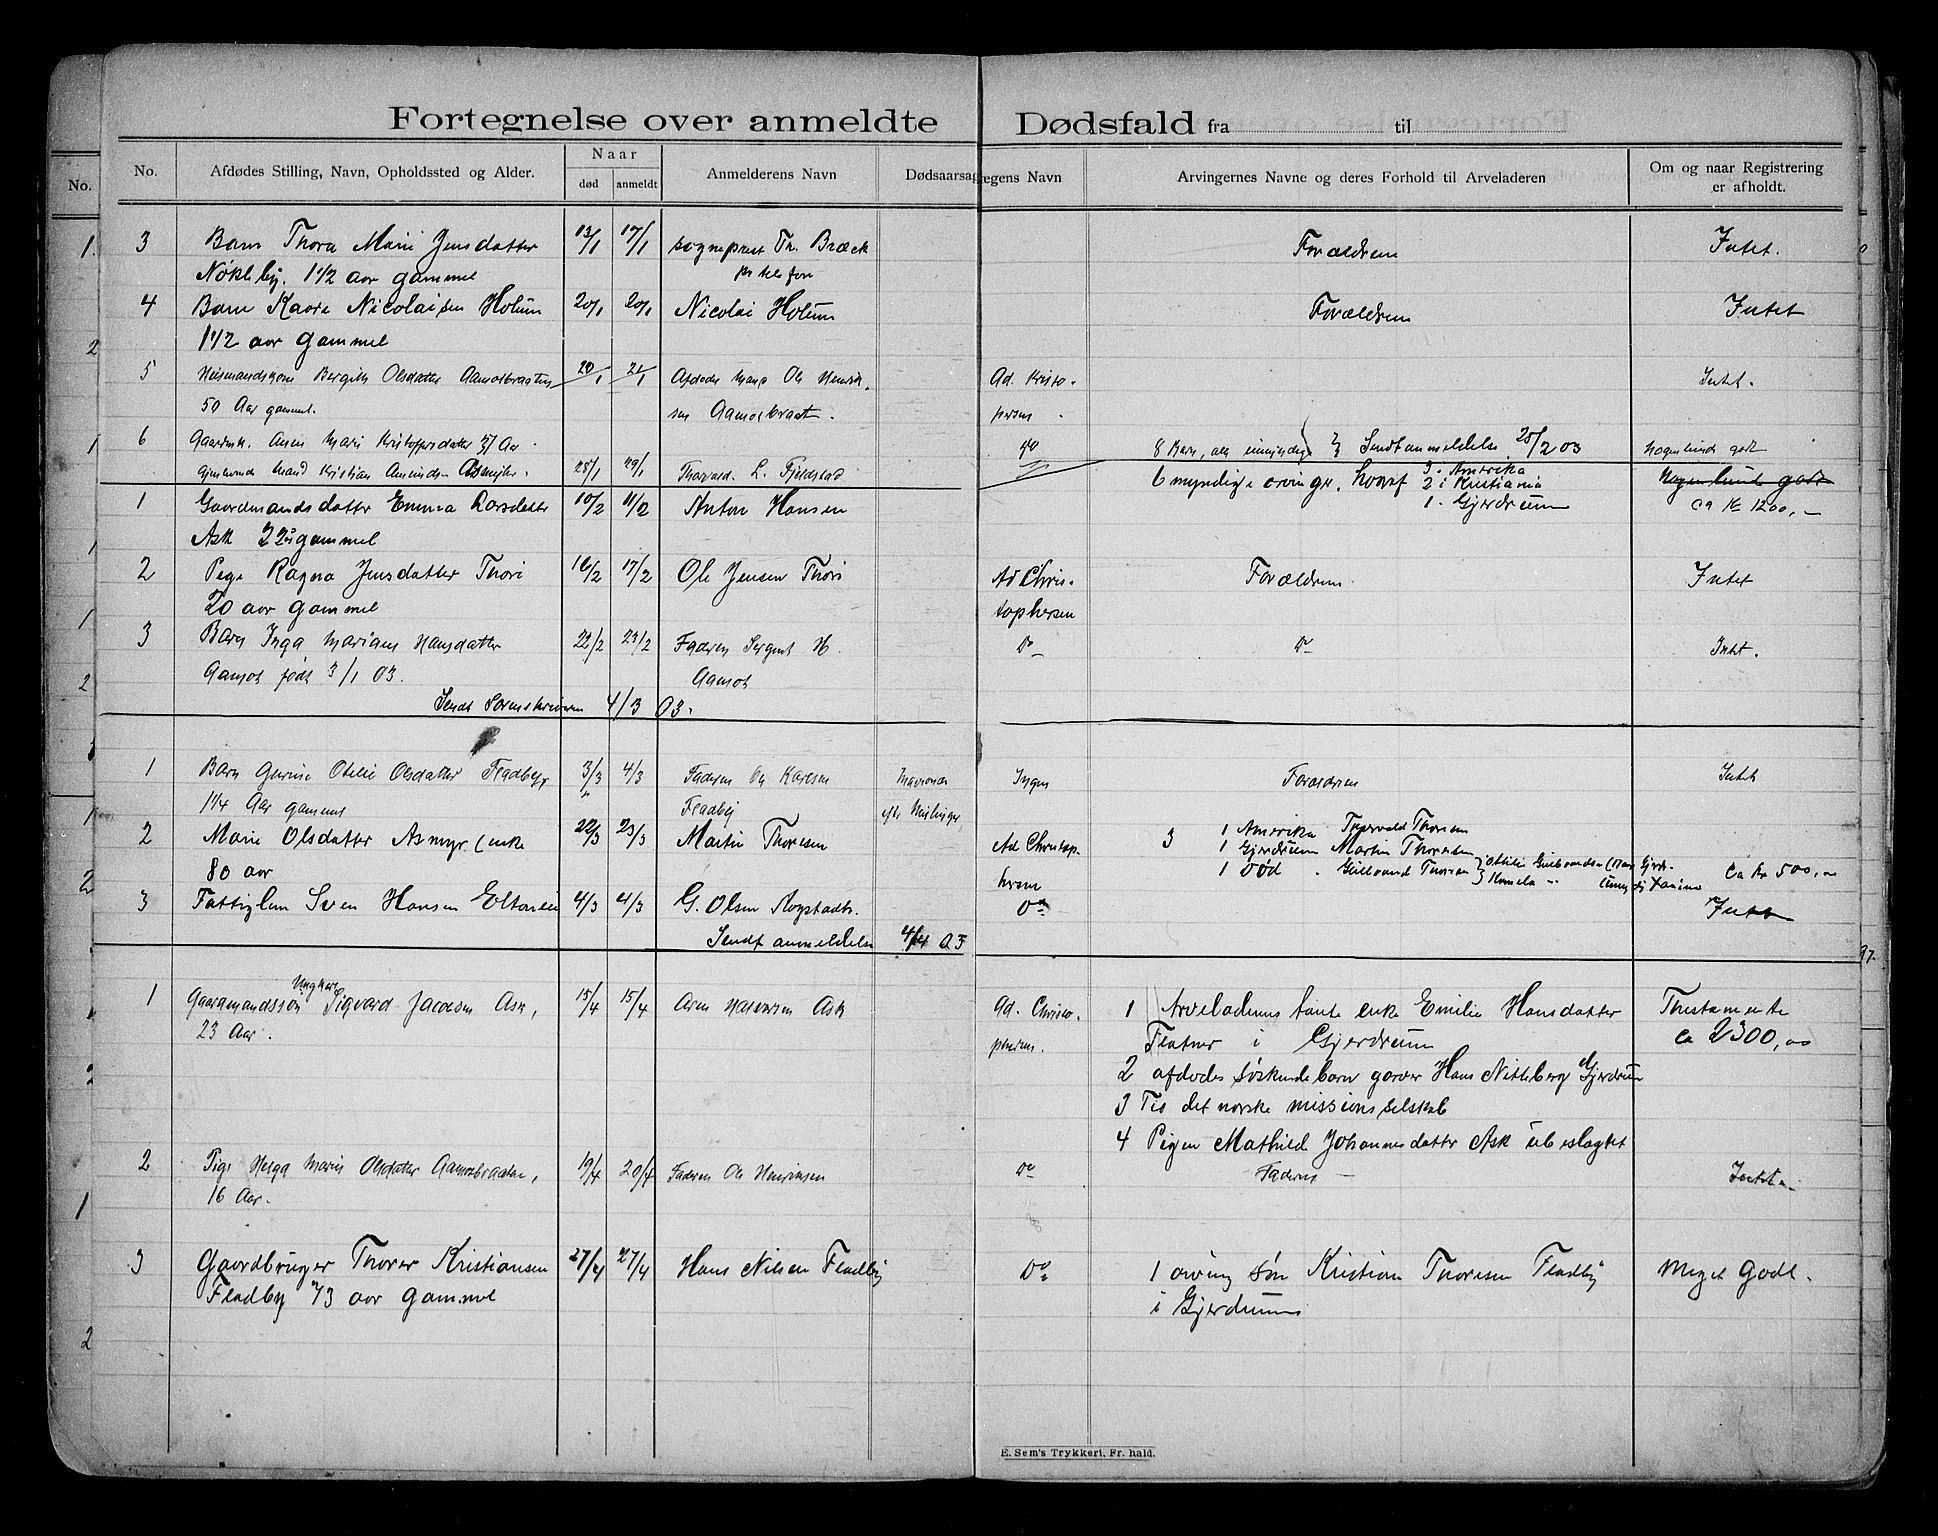 Fortegnelse over anmeldte Dødsfald fra til
No. Afdødes Stilling, Navn, Opholdssted og Alder. Naar Anmelderens Navn Dødsaarsag Lægens Navn Arvingernes Navne og deres Forhold til Arveladeren Om og naar Registrering
død anmeldt er afholdt.
3 Barn Thora Marie Jensdatter 13/1 17/1 sogneprest Th. Bræck Forældrene Intet.
Nökleby. 1 1/2 aar gammel pr telefon
4 Barn Kaare Nicolaisen Holum 20/1 20/1 Nicolai Holum Forældrene Intet
1 1/2 aar gammel
5 Bergitte Olsdatter Aamotbraaten 20/1 21/1 Afdødes Mand Ole Henrik- Ad. Kristo- Intet.
50 Aar gammel. sen Aamotbraat. persen
6 Gaardmk. Anne Marie Kristoffersdatter 37 Aar do 8 Børn, alle umyndige Sendt anmeldelse 25/2 03 Nogenlunde godt
Mand Kristian Amundsen 28/1 29/1 Thorvald L. Fjeldstad
1 Gaardmandsdatter Emma Larsdatter 10/2 11/2 Anton Hansen 6 myndige arvinger, hvoraf 3 i Amerika 2 i Kristiania Nogenlunde godt
Ask 22 år gammel 1 - Gjerdrum ca Kr 1200,-
2 Pige Ragna Jensdatter Thori 16/2 17/2 Ole Jensen Thori Ad Chris- Forældrene Intet
20 aar gammel tophersen
3 Barn Inga Mariane Hansdatter 22/2 23/2 Faderen Sergent H. Do Do Intet.
Aamot født 3/1 03. Aamot
Sendt Sorenskriveren 4/3 03.
1 Barn Gurine Otelie Olsdatter Fladby, 3/3 4/3 Faderen Ole Karlsen Ingen Forældrene Intet
1 1/4 Aar gammel Fladby
2 Marie Olsdatter Asmyr (enke 22/3 23/3 Martin Thoresen Ad Christop- 3 1 Amerika Thorvald Thoresen
1 Gjerdrum Martin Thoresen
80 aar hersen 1 Død Gulbrand Thoresen ca Kr 500,00
3 Fattiglem Sven Hansen 4/3 4/3 G. Olsen Rogstadb. Do Intet
Sendt anmeldelse 4/4 03
1 Ungkarl
Gaardmandssön Sigvard Jacobsen Ask, 15/4 15/4 Aren Halvorsen Ask Ad. Christo- 1 Arveladerens tante enke Emilie Hansdatter Thestamente
23 Aar. phersen. Flatner i Gjerdrum ca 2300,00
2 afdødes søskendebarn garver Hans Nitteberg Gjerdrum
3 Til det norske missionsselskab
4 Pigen Mathild Johannesdatter Ask ubeslægtet
2 Pige Helga Marie Olsdatter Aamotbraaten, 19/4 20/4 Faderen Ole Henriksen Do Faderen - Intet.
16 Aar.
3 Gaardbruger Thorer Kristiansen 27/4 27/4 Hans Nilsen Fladby Do 1 arving søn Kristian Thoresen Fladby Meget Godt.
Fladby 73 aar gammel i Gjerdrum
E. Sem's Trykkeri, Fr. hald.